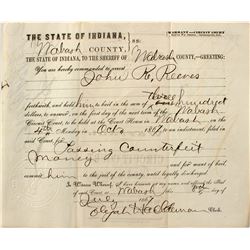 WARRANT—CIRCUIT COURT
THE STATE OF INDIANA,
Wabash COUNTY, SS:
THE STATE OF INDIANA, TO THE SHERIFF OF Wabash COUNTY—GREETING:
You are hereby commanded to arrest
John R. Reeves
forthwith, and hold him to bail in the sum of Three hundred
dollars, to answer, on the first day of the next term of the Wabash
Circuit Court, to be held at the Court House in Wabash on the
4th Monday in Oct 1867, to an indictment, filed in
said Court, for
Passing Counterfeit
Money and for want of bail, commit
him to the jail of the county, until legally discharged.
In Witness Whereof, I have hereunto set my name and affixed the seal
of said Court, at Wabash this
day of July 1867
Elijah Clerk.